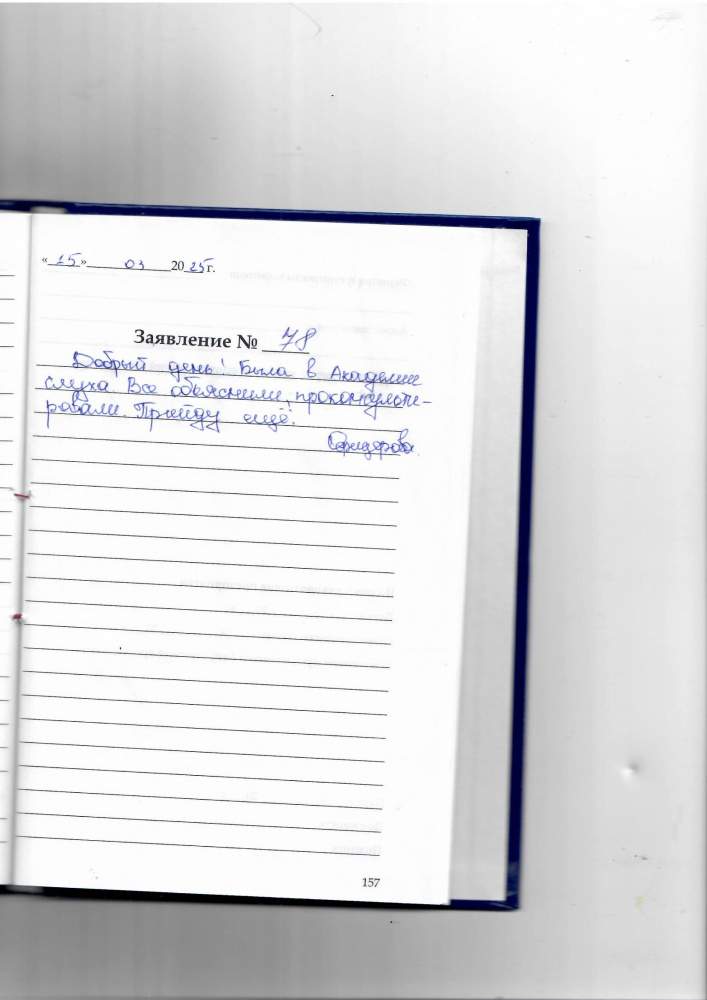 «15» 03 2025г.
Заявление № 78
Добрый день! Была в Академии
слуха. Все объяснили, проконсульти-
ровали. Прийду ещё!
157